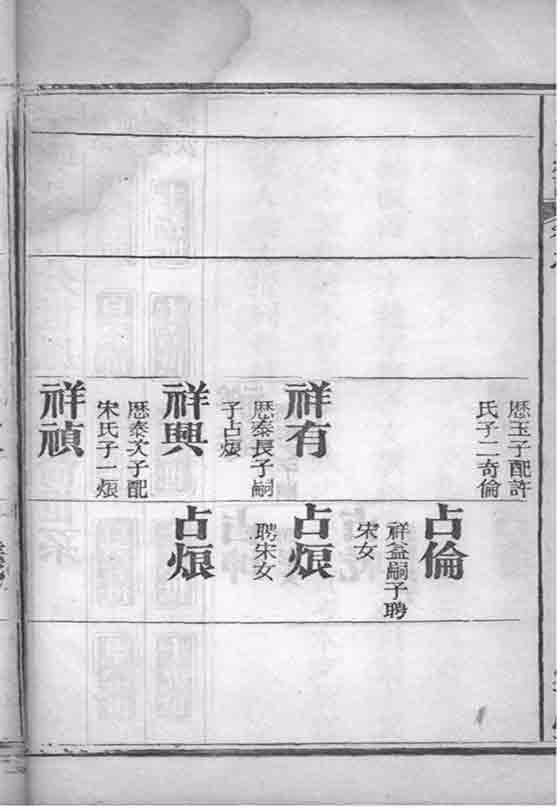 歴玉子配許
氏子二奇倫
祥有
歴泰長子嗣
子占烺
祥興
歴泰次子配
宋氏子一烺
祥禎
占倫
祥益嗣子聘
宋女
占烺
聘宋女
占烺